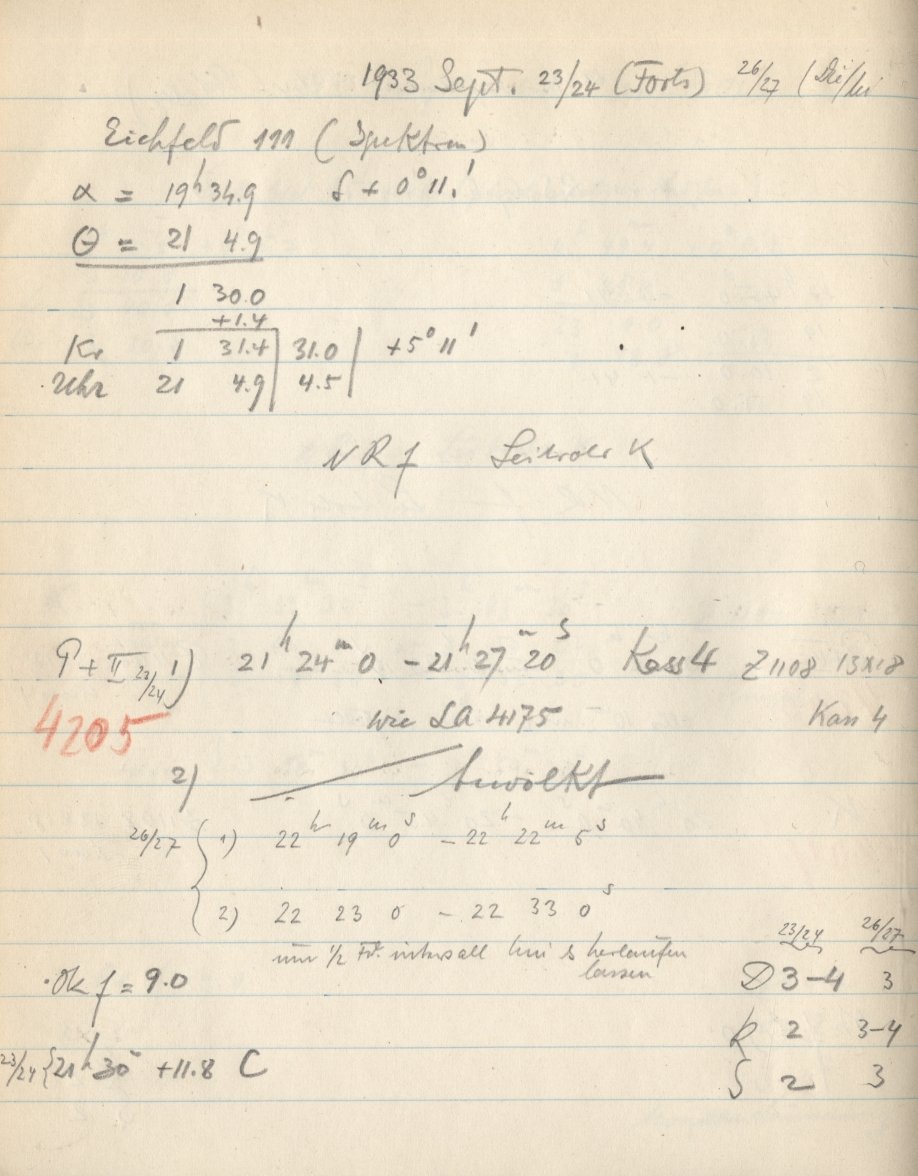 1933 Sept. 23/24 (Forts) 26/27 (Die/Mi
Eichfeld 111 (Spektren)
α = 19h 34.9 δ + 0° 11.'
Θ = 21 4.9
1 30.0
+1.4
Kr 1 31.4 | 31.0 | +5° 11'
Uhr 21 4.9 | 4.5 |
NR f Leitrohr K
P + II 23/24 1) 21h 24m 0 - 21h 27m 20s Kass 4 Z 1108 13x18
4205 wie LA 4175 Kass 4
2) bewölkt
26/27 { 1) 22h 19m 0s - 22h 22m 5s
2) 22 23 0 - 22 33 0s
um 1/2 intervall hin & herlaufen
lassen
23/24 26/27
Ok f = 9.0 D 3-4 3
R 2 3-4
23/24 { 21h 30m +11.8 C S 2 3